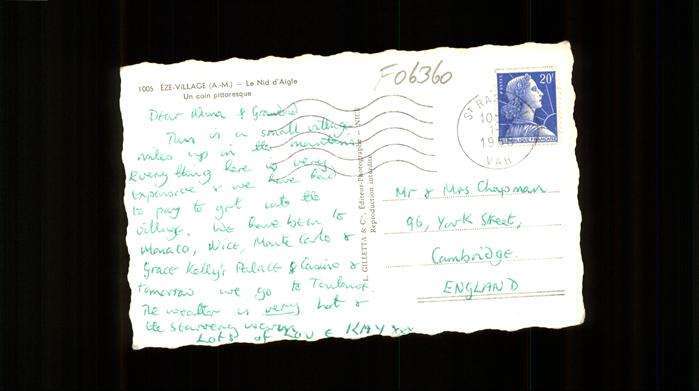 1005 ÈZE-VILLAGE (A.-M.) — Le Nid d'Aigle
Un coin pittoresque
F06360
20F
POSTES
RÉPUBLIQUE FRANÇAISE
ST RA
10-
19
VAR
Dear Nana & Grandad
This is a small village
miles up in the mountains
Everything here is very
expensive & we have had
to pay to get into the
village. We have been to
Monaco, Nice, Monte Carlo &
Grace Kelly's Palace & Casino &
tomorrow we go to Toulouse.
The weather is very hot &
the scenery
Lots of Love KAY xxx
L. GILLETTA & Cie, Éditeur-Photographe — NICE
Reproduction interdite
Mr & Mrs Chapman
96, York Street,
Cambridge
ENGLAND